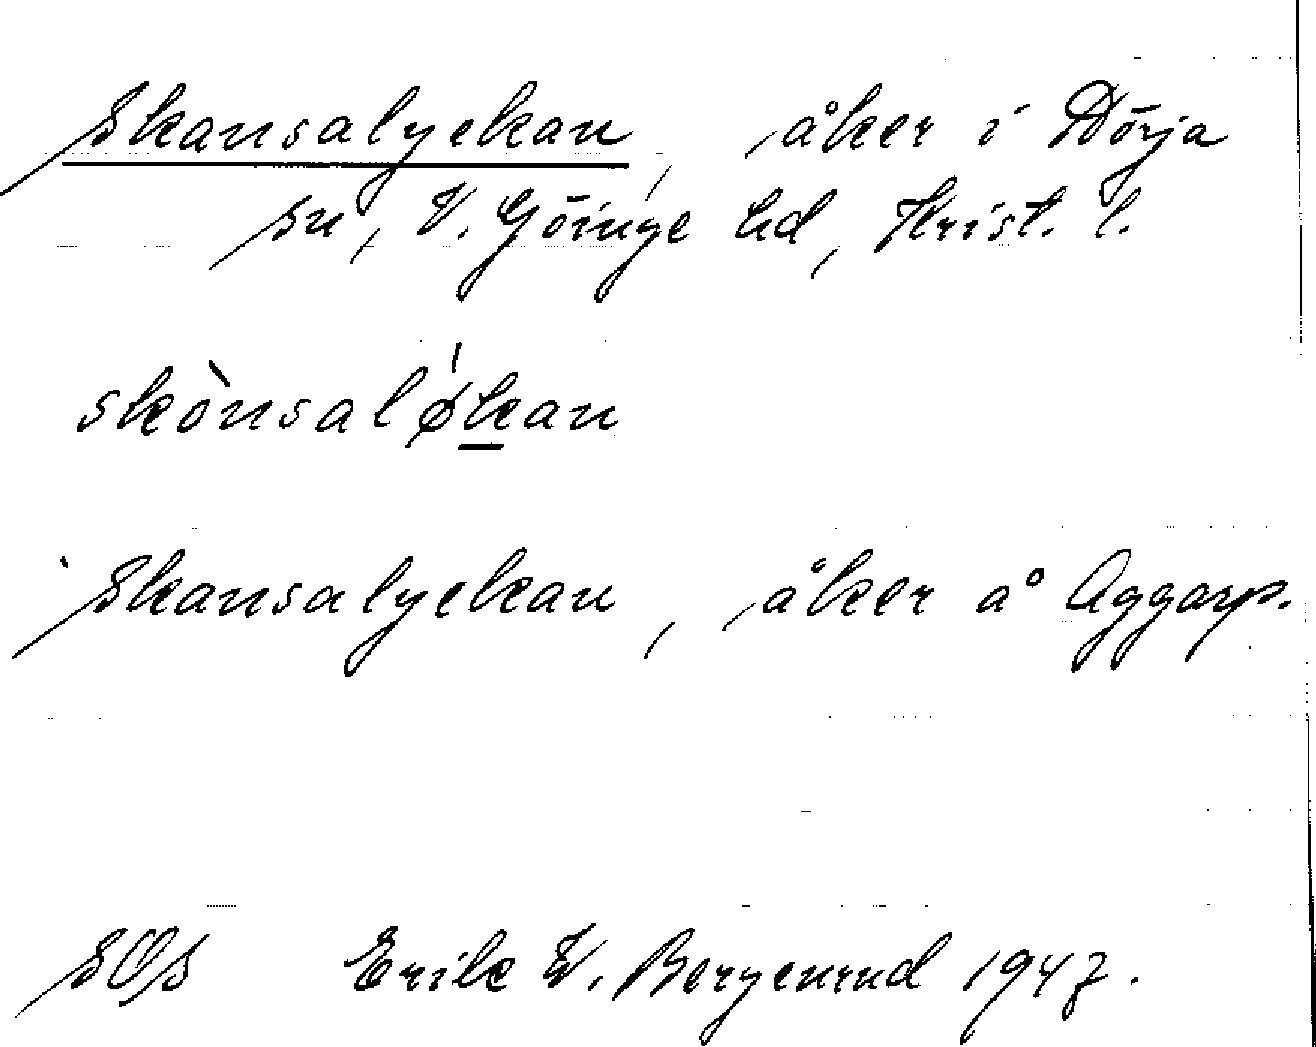 Skansalyckan, åker i Dörja
sn, V. Göinge hd, Krist. l.
skònsaló̷kan
Skansalyckan, åker å Aggarp.
SOS Erik W. Bergenrud 1947.